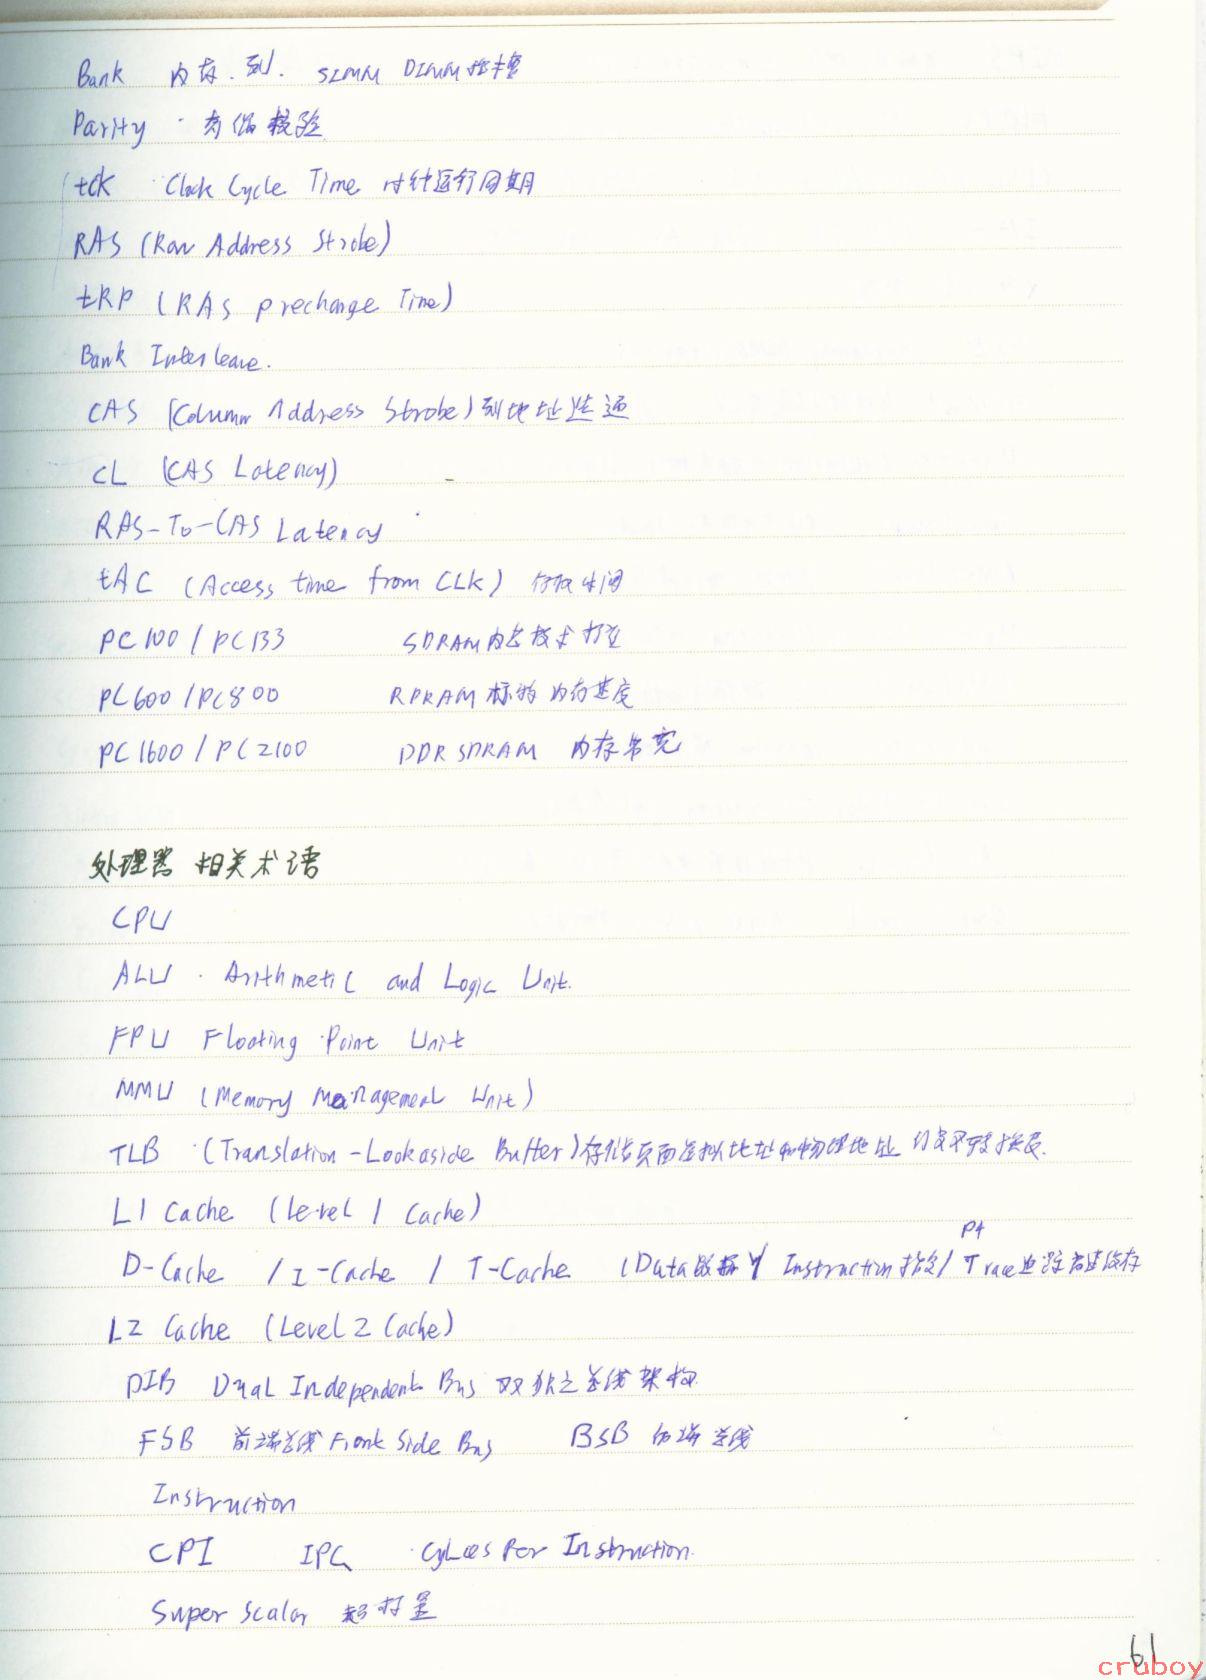 Bank 内存.列. SIMM DIMM 插槽
Parity · 奇偶校验
tCK · Clock Cycle Time 时钟运行周期
RAS (Row Address Strobe)
tRP (RAS precharge Time)
Bank Interleave.
CAS (Column Address Strobe) 列地址选通
CL (CAS Latency)
RAS-To-CAS Latency
tAC (Access time from CLK) 存取时间
PC100 / PC133 SDRAM内存技术
PC600 / PC800 RDRAM 标的 内存速度
PC1600 / PC2100 DDR SDRAM 内存带宽
处理器 相关术语
CPU
ALU · Arithmetic and Logic Unit.
FPU Floating Point Unit
MMU (Memory Management Unit)
TLB · (Translation-Lookaside Buffer) 存储页面虚拟地址和物理地址
L1 Cache (Level 1 Cache)
P4
D-Cache / I-Cache / T-Cache (Data数据 / Instruction指令 / Trace追踪高速缓存
L2 Cache (Level 2 Cache)
DIB Dual Independent Bus 双独立总线架构
FSB 前端总线 Front Side Bus BSB 后端总线
Instruction
CPI IPC · Cylces Per Instruction.
Super Scalar 超标量
61
cruboy